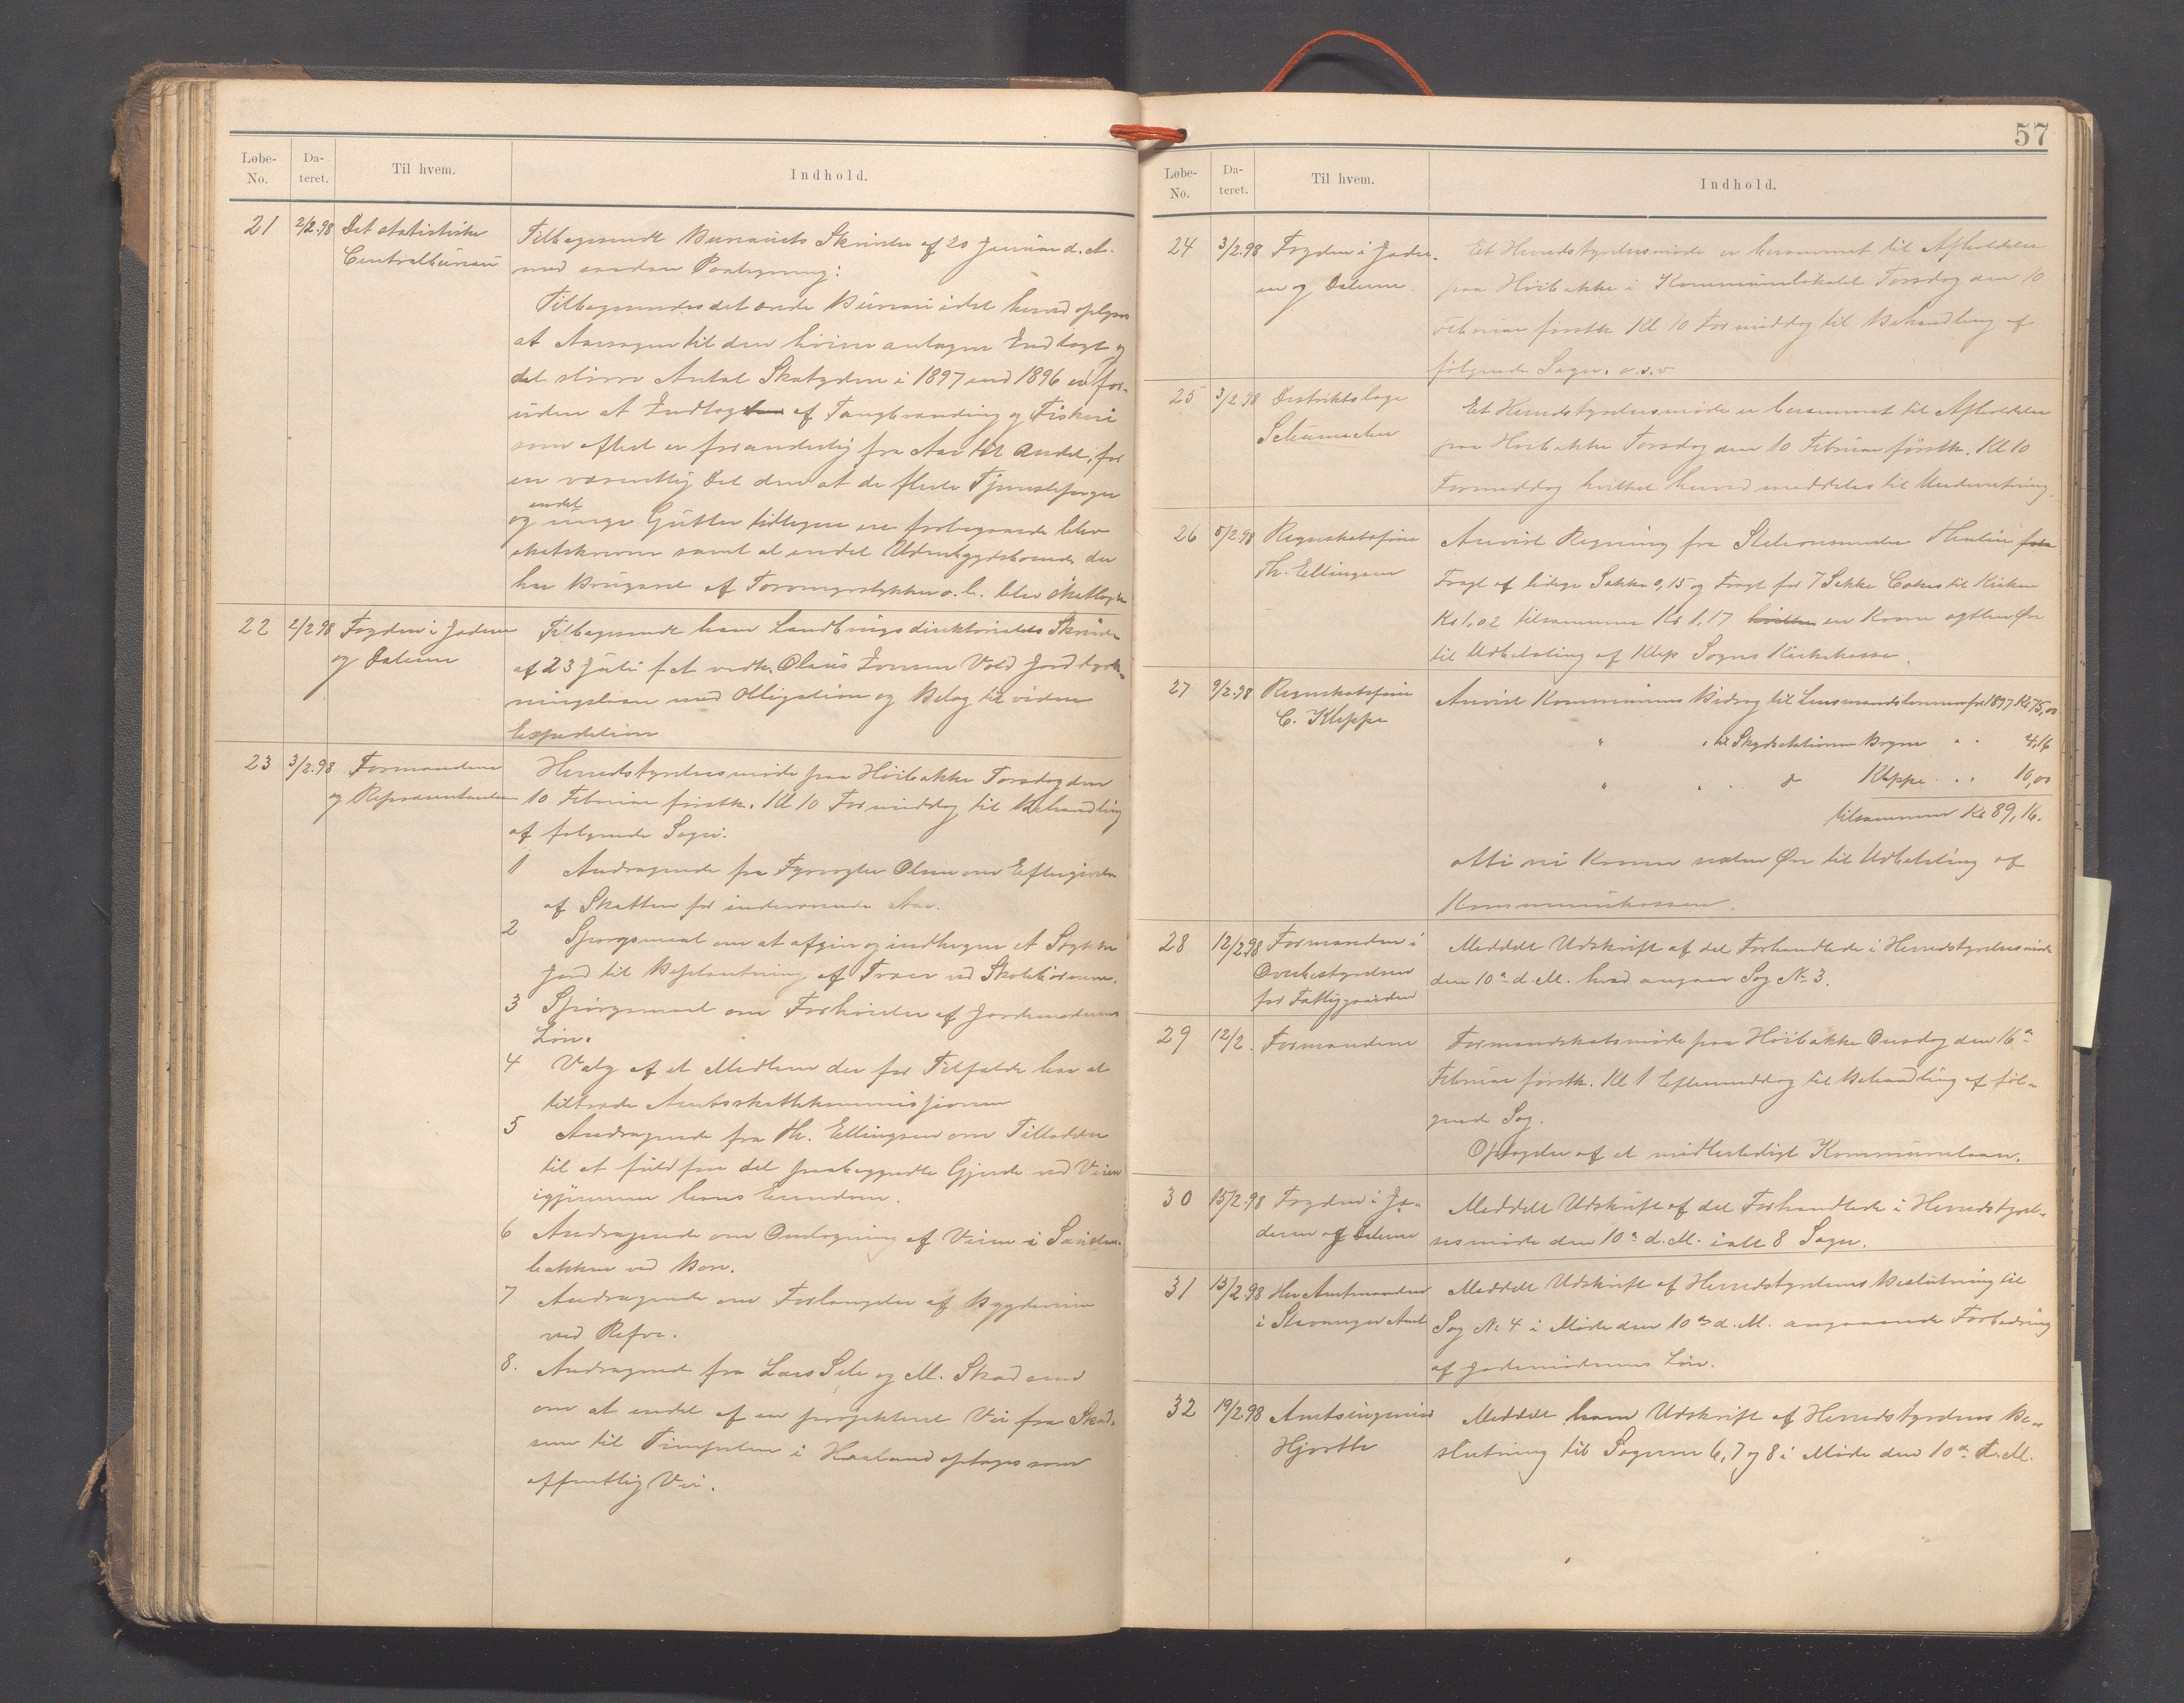 Løbe-No. Dateret. Til hvem. Indhold.
21 2/2.98 Det statistiske Centralbureau
Tilbagesendt Bureauets Skrivelse af 20 Januar d. A.
med saadan Paategning:
Tilbagesendes det ærede Bureau idet herved oplyses
at Aarsagen til den høiere antagne Indtægt og
det større Antal Skatydere i 1897 end 1896 er for-
uden at Indtægten af Tangbrænding og Fiskeri
som oftest er foranderlig fra Aar til Andet, for
en væsentlig Del den at de fleste Tjenestepiger
og endel unge Gutter tidligere en forbigaaende blev
skatskreven samt at endel Udenbygdsboende der
har Brugsret af Torvmyrstykker o. l. blev skatlagte
22 2/2 98 Fogden i Jæderen og Dalerne
Tilbagesendt ham Landbrugsdirektoriatets Skrivelse
af 23 Juli f. A vedk. Olaus Vold Jorddyrk-
ningslaan med Obligation og Bilag til videre
Expedition
23 3/2.98 Formændene og Repræsentanter
Herredstyrelsesmøde paa Høibakke Torsdag den
10 Februar førstk. Kl 10 Formiddag til Behandling
af følgende Sager:
1 Andragende fra Fyrvogter Olsen om Eftergivelse
af Skatten for indeværende Aar.
2 Spørgsmaal om at afgive og indhegne et Stykke
Jord til Beplantning af Træer ved Skolehusene.
3 Spørgsmaal om Forhøielse af Jordemoderens
Løn.
4 Valg af et Medlem der for Tilfælde har at
tiltræde Amtsskattekommissionen
5 Andragende fra Th. Ellingsen om Tilladelse
til at fuldføre det paabegyndte Gjerde ved Veien
igjennem hans Eiendom.
6 Andragende om Omlægning af Veien i
bakken ved Bore.
7 Andragende om Forlængelse af Bygdeveien
ved Refve.
8. Andragende fra Lars Sele og M. Skadsem
om at endel af en projekteret Vei fra Skad-
sem til i Haaland optages som
offentlig Vei.
57
Løbe-No. Dateret. Til hvem. Indhold.
24 3/2.98 Fogden i Jæderen og Dalerne.
Et Herredstyrelsesmøde er berammet til Afholdelse
paa Høibakke i Kommunelokalet Torsdag den 10
Februar førstk Kl 10 Formiddag til Behandling af
følgende Sager. o.s.v
25 3/2 98 Distriktslæge Schumacher
Et Herredstyrelsesmøde er berammet til Afholdelse
paa Høibakke Torsdag den 10 Februar førstk. Kl 10
Formiddag hvilket herved meddeles til Underretning.
26 5/2.98 Regnskabsfører Th. Ellingsen
Anvist Regning fra Stationsmester Thulin for
Fragt af ledige Sække 0,15 og Fragt for 7 Sække Cokes til Kirken
Kr 1,02 tilsammen Kr 1,17 hvilken en Krone sytten Øre
til Udbetaling af Klep Sogns Kirkekasse.
27 9/2.98 Regnskabsfører C. Kleppe
Anvist Kommunens Bidrag til Lensmandslønnen for 1897 Kr 75,00
" " til Skydsstationen Bryne " " 4,16
" " do Kleppe " " 10,00
tilsammen Kr 89,16.
otti ni Kroner sexten Øre til Udbetaling af
Kommunekassen.
28 12/2.98 Formanden i Overbestyrelsen for Fattiggaarden
Meddelt Udskrift af det Forhandlede i Herredstyrelsesmøde
den 10de d. M. hvad angaar Sag No 3.
29 12/2. Formændene
Formandskabsmøde paa Høibakke Onsdag den 16de
Februar førstk. Kl 1 Eftermiddag til Behandling af føl-
gende Sag.
Optagelse af et midlertidigt Kommunelaan.
30 15/2.98 Fogden i Jæderen og Dalerne
Meddelt Udskrift af det Forhandlede i Herredstyrel-
sesmøde den 10de d. M. ialt 8 Sager.
31 15/2.98 Hr Amtmanden i Stavanger Amt
Meddelt Udskrift af Herredstyrelsens Beslutning til
Sag No 4 i Møde den 10de d. M. angaaende Forbedring
af Jordemødrenes Løn.
32 19/2.98 Amtsingeniør Hjorth
Meddelt ham Udskrift af Herredstyrelsens Be-
slutning til Sagerne 6, 7 og 8 i Møde den 10de d. M.